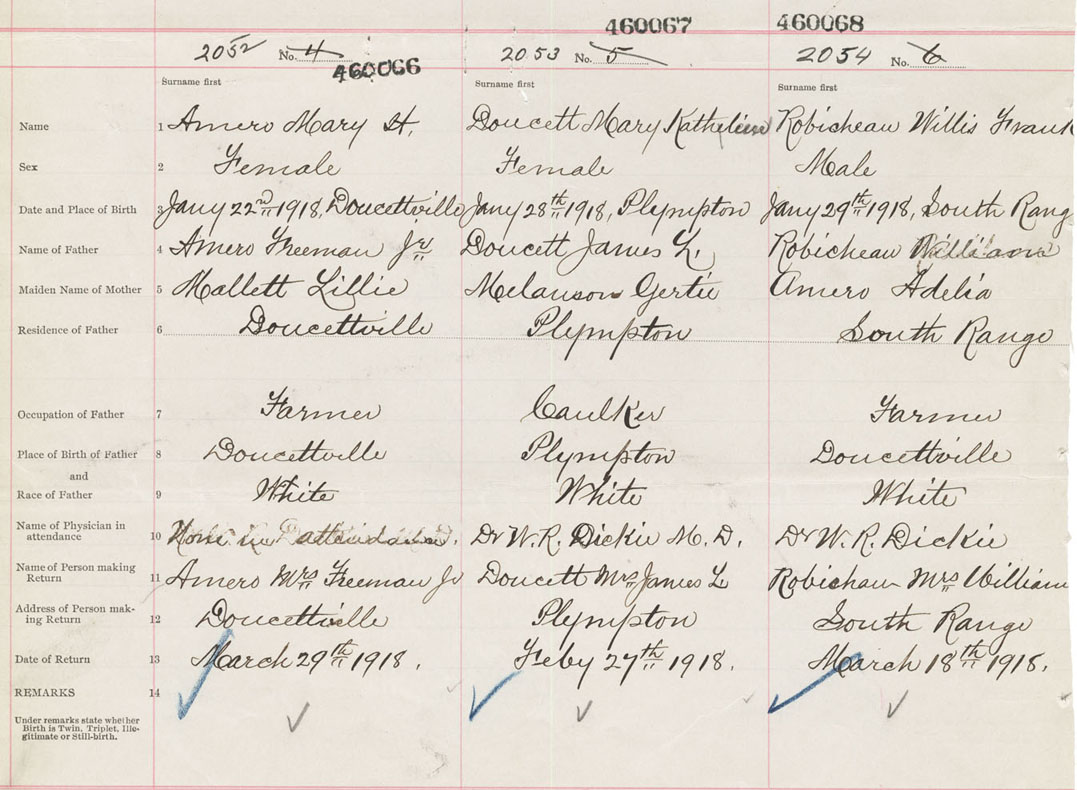 460067 460068
2052 No. 4 460066 2053 No. 5 2054 No. 6
Surname first Surname first Surname first
Name 1 Amero Mary H. Doucett Mary Kathelien Robicheau Willis Frank
Sex 2 Female Female Male
Date and Place of Birth 3 Jany 22nd 1918, Doucettville Jany 28th 1918, Plympton Jany 29th 1918, South Rang
Name of Father 4 Amero Freeman Jr Doucett James L. Robicheau William
Maiden Name of Mother 5 Mallett Lillie Melanson Gertie Amero Adelia
Residence of Father 6 Doucettville Plympton South Range
Occupation of Father 7 Farmer Caulker Farmer
Place of Birth of Father 8 Doucettville Plympton Doucettville
and
Race of Father 9 White White White
Name of Physician in
attendance 10 None in attendance. Dr W. R. Dickie M. D. Dr W. R. Dickie
Name of Person making
Return 11 Amero Mrs Freeman Jr Doucett Mrs James L Robichau Mrs William
Address of Person mak-
ing Return 12 Doucettville Plympton South Range
Date of Return 13 March 29th 1918. Feby 27th 1918. March 18th 1918.
REMARKS 14
Under remarks state whether
Birth is Twin, Triplet, Ille-
gitimate or Still-birth.